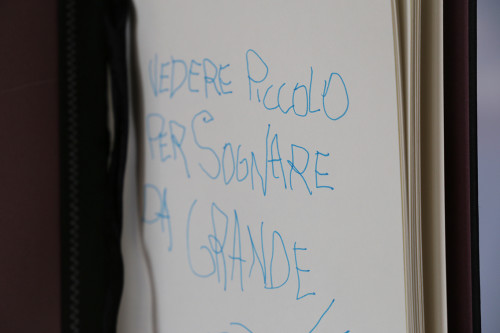 VEDERE PiCCOLO
PER SOGNARE
DA GRANDE